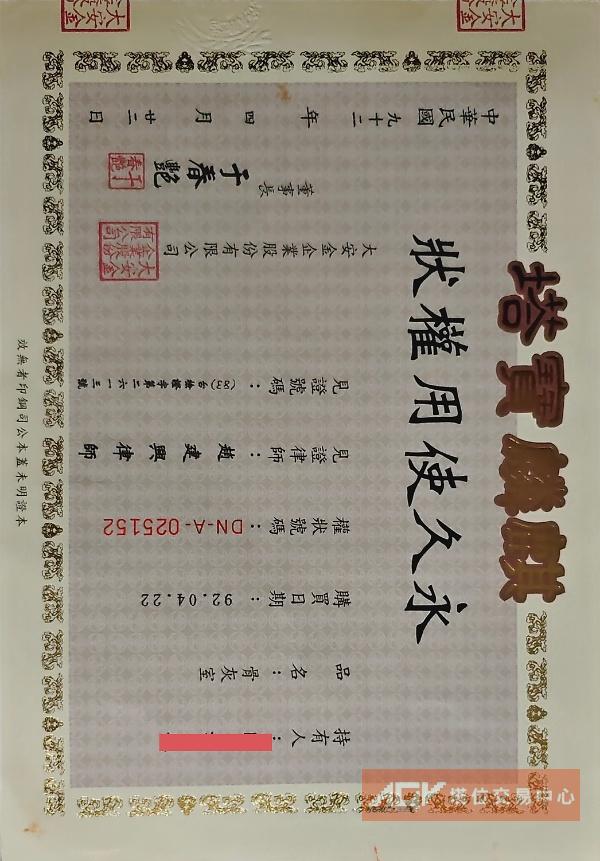 麒麟寶塔
永久使用權狀
持有人：
品名：骨灰室
購買日期：92.04.22
權狀號碼：DN-A-025152
見證律師：趙建興律師
見證號碼：字第二六一三號
大安金企業股份有限公司
大安金企業股份有限公司
董事長 于春艷
于春艷
中華民國九十二年四月廿二日
本證明未蓋本公司鋼印者無效
塔位交易中心